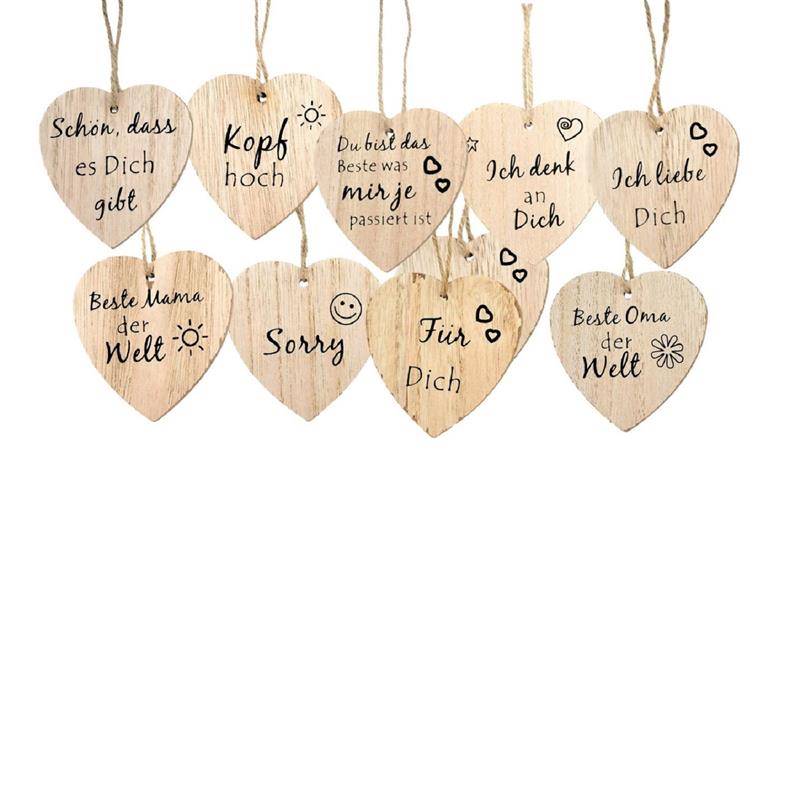 Schön, dass
es Dich
gibt
Kopf
hoch
Du bist das
Beste was
mir je
passiert ist
Ich denk
an
Dich
Ich liebe
Dich
Beste Mama
der
Welt
Sorry
Für
Dich
Beste Oma
der
Welt